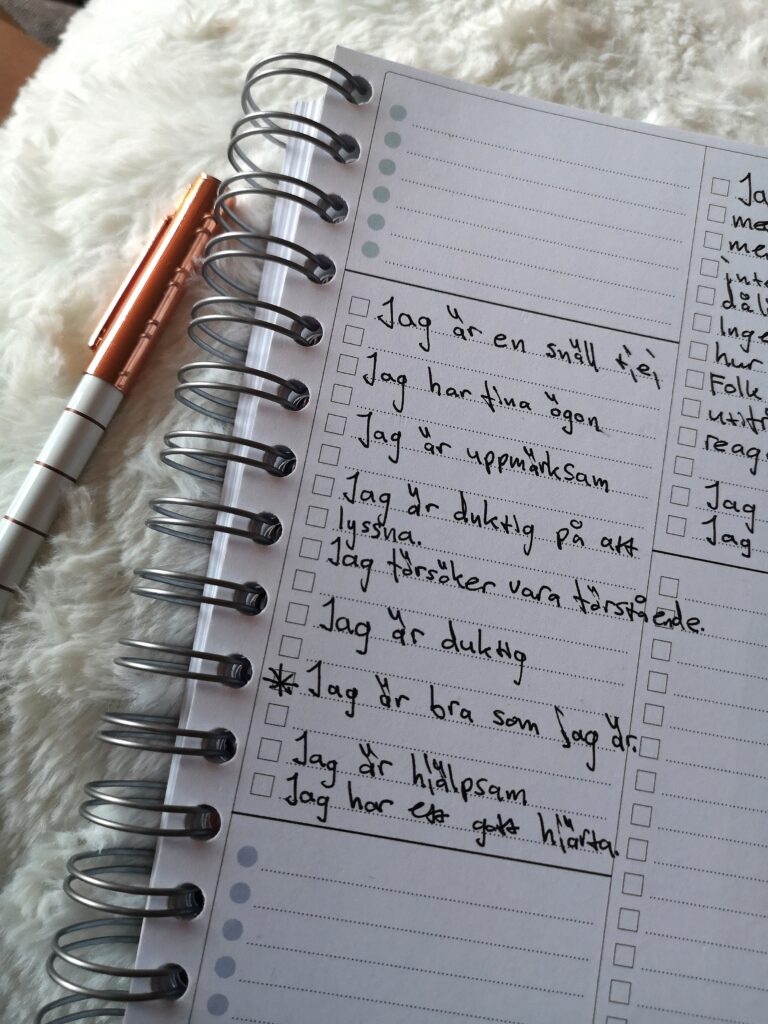 Jag är en snäll tjej
Jag har fina ögon
Jag är uppmärksam
Jag är duktig på att
lyssna.
Jag försöker vara förstående.
Jag är duktig
* Jag är bra som jag är.
Jag är hjälpsam
Jag har ett gott hjärta.
Ja
inte
dåli
Inge
hur
Folk
utifr
reag
Jag
Jag